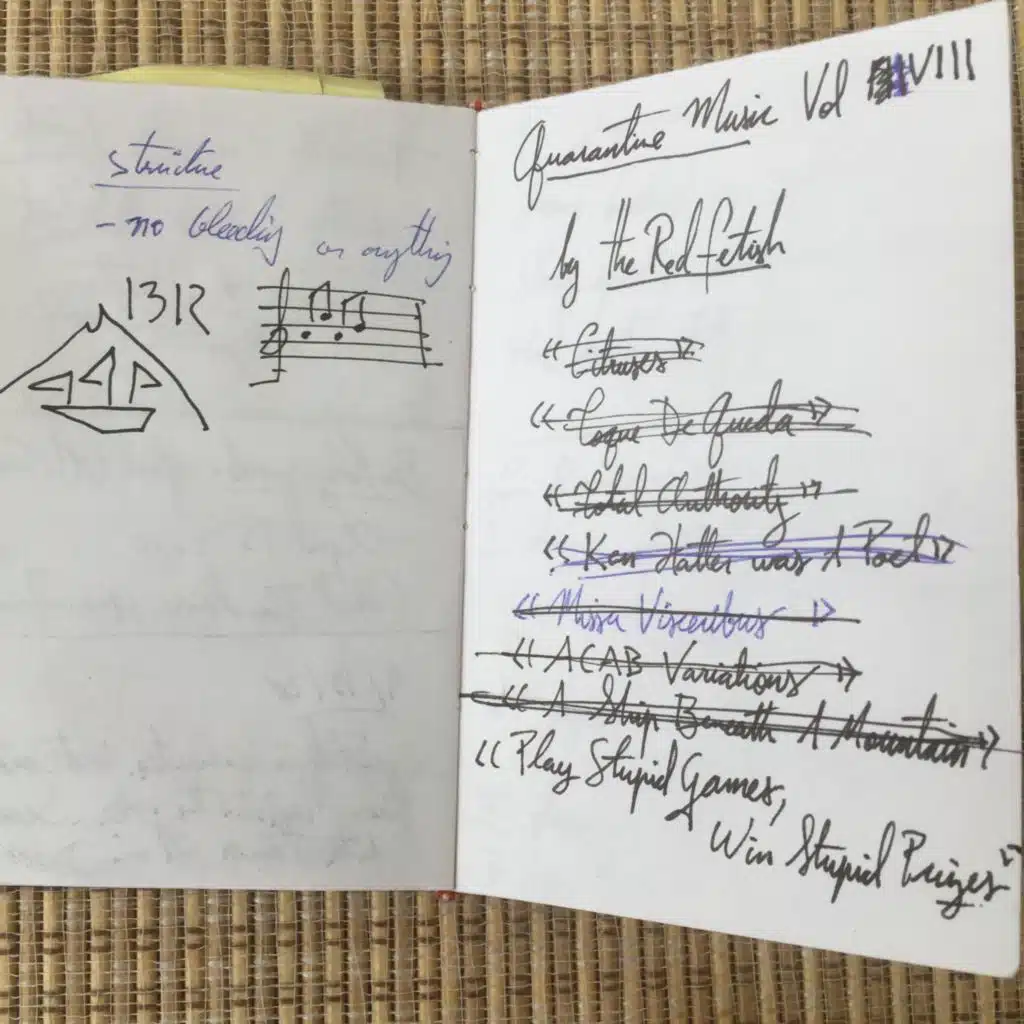 structure
- no bleeding or anything
1312
Quarantine Music Vol VIII
by the Red Fetish
"Citruses"
"Toque De Queda"
"Total Authority"
"Ken Hatter was A Poet"
"Missa Visceribus"
"ACAB Variations"
"A Ship Beneath A Mountain"
"Play Stupid Games,
Win Stupid Prizes"